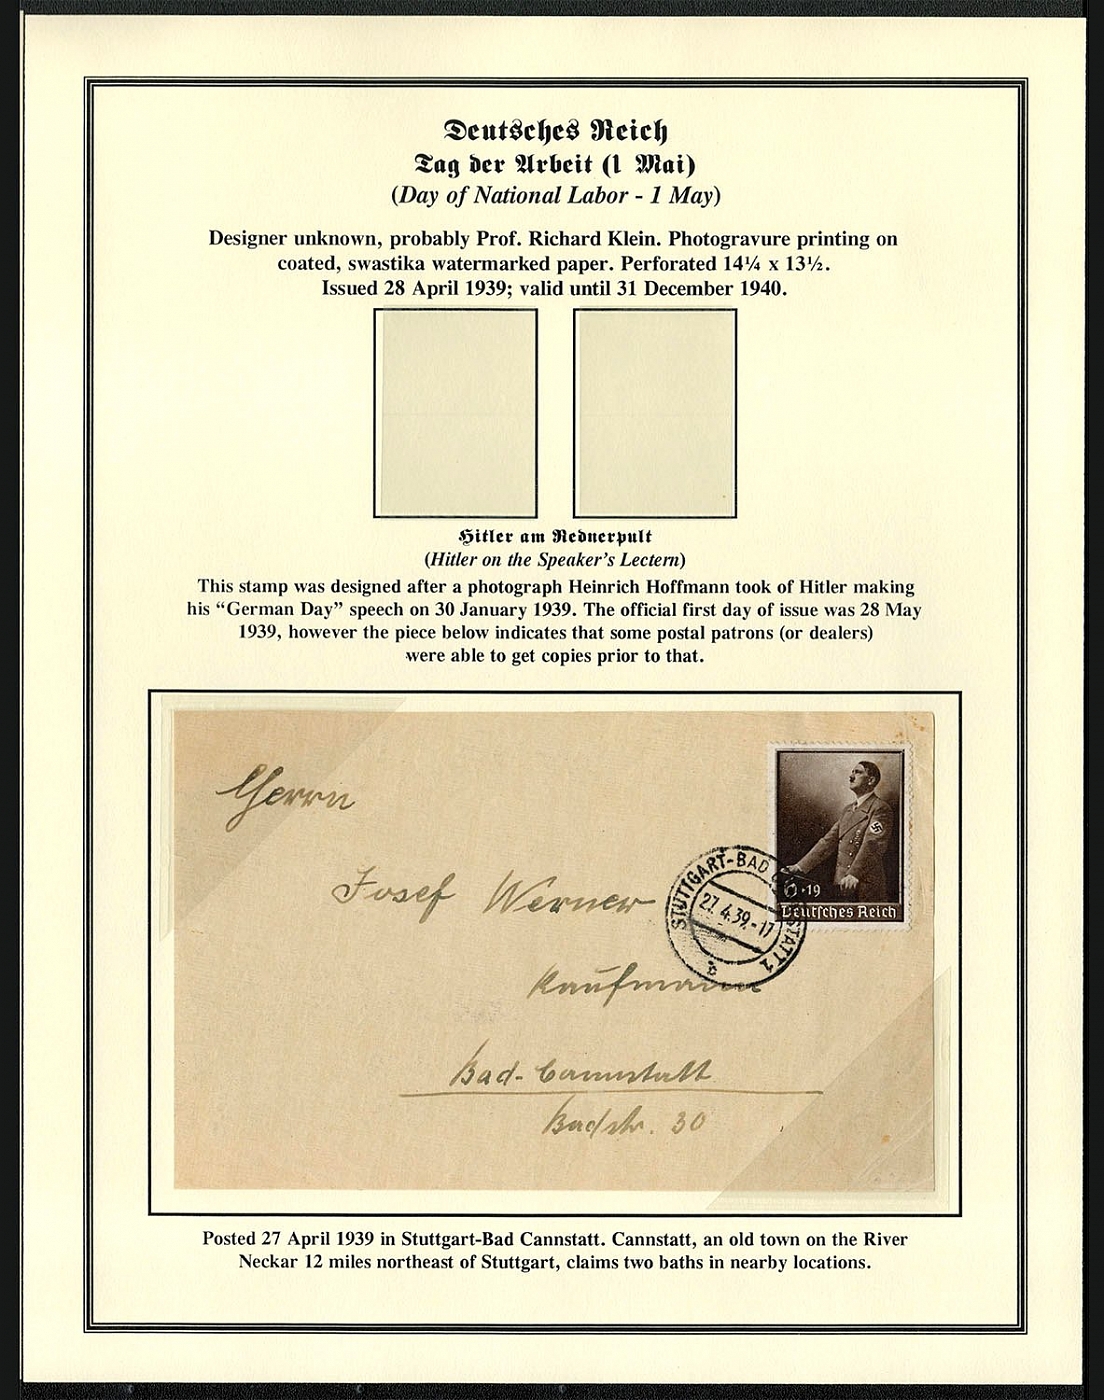 Deutsches Reich
Tag der Arbeit (1 Mai)
(Day of National Labor - 1 May)
Designer unknown, probably Prof. Richard Klein. Photogravure printing on
coated, swastika watermarked paper. Perforated 14¼ x 13½.
Issued 28 April 1939; valid until 31 December 1940.
Hitler am Rednerpult
(Hitler on the Speaker's Lectern)
This stamp was designed after a photograph Heinrich Hoffmann took of Hitler making
his “German Day” speech on 30 January 1939. The official first day of issue was 28 May
1939, however the piece below indicates that some postal patrons (or dealers)
were able to get copies prior to that.
Herrn
Josef Werner
Kaufmann
Bad-Cannstatt
Badstr. 30
STUTTGART-BAD
27.4.39.-17
STATT 1
b
19
Deutsches Reich
Posted 27 April 1939 in Stuttgart-Bad Cannstatt. Cannstatt, an old town on the River
Neckar 12 miles northeast of Stuttgart, claims two baths in nearby locations.